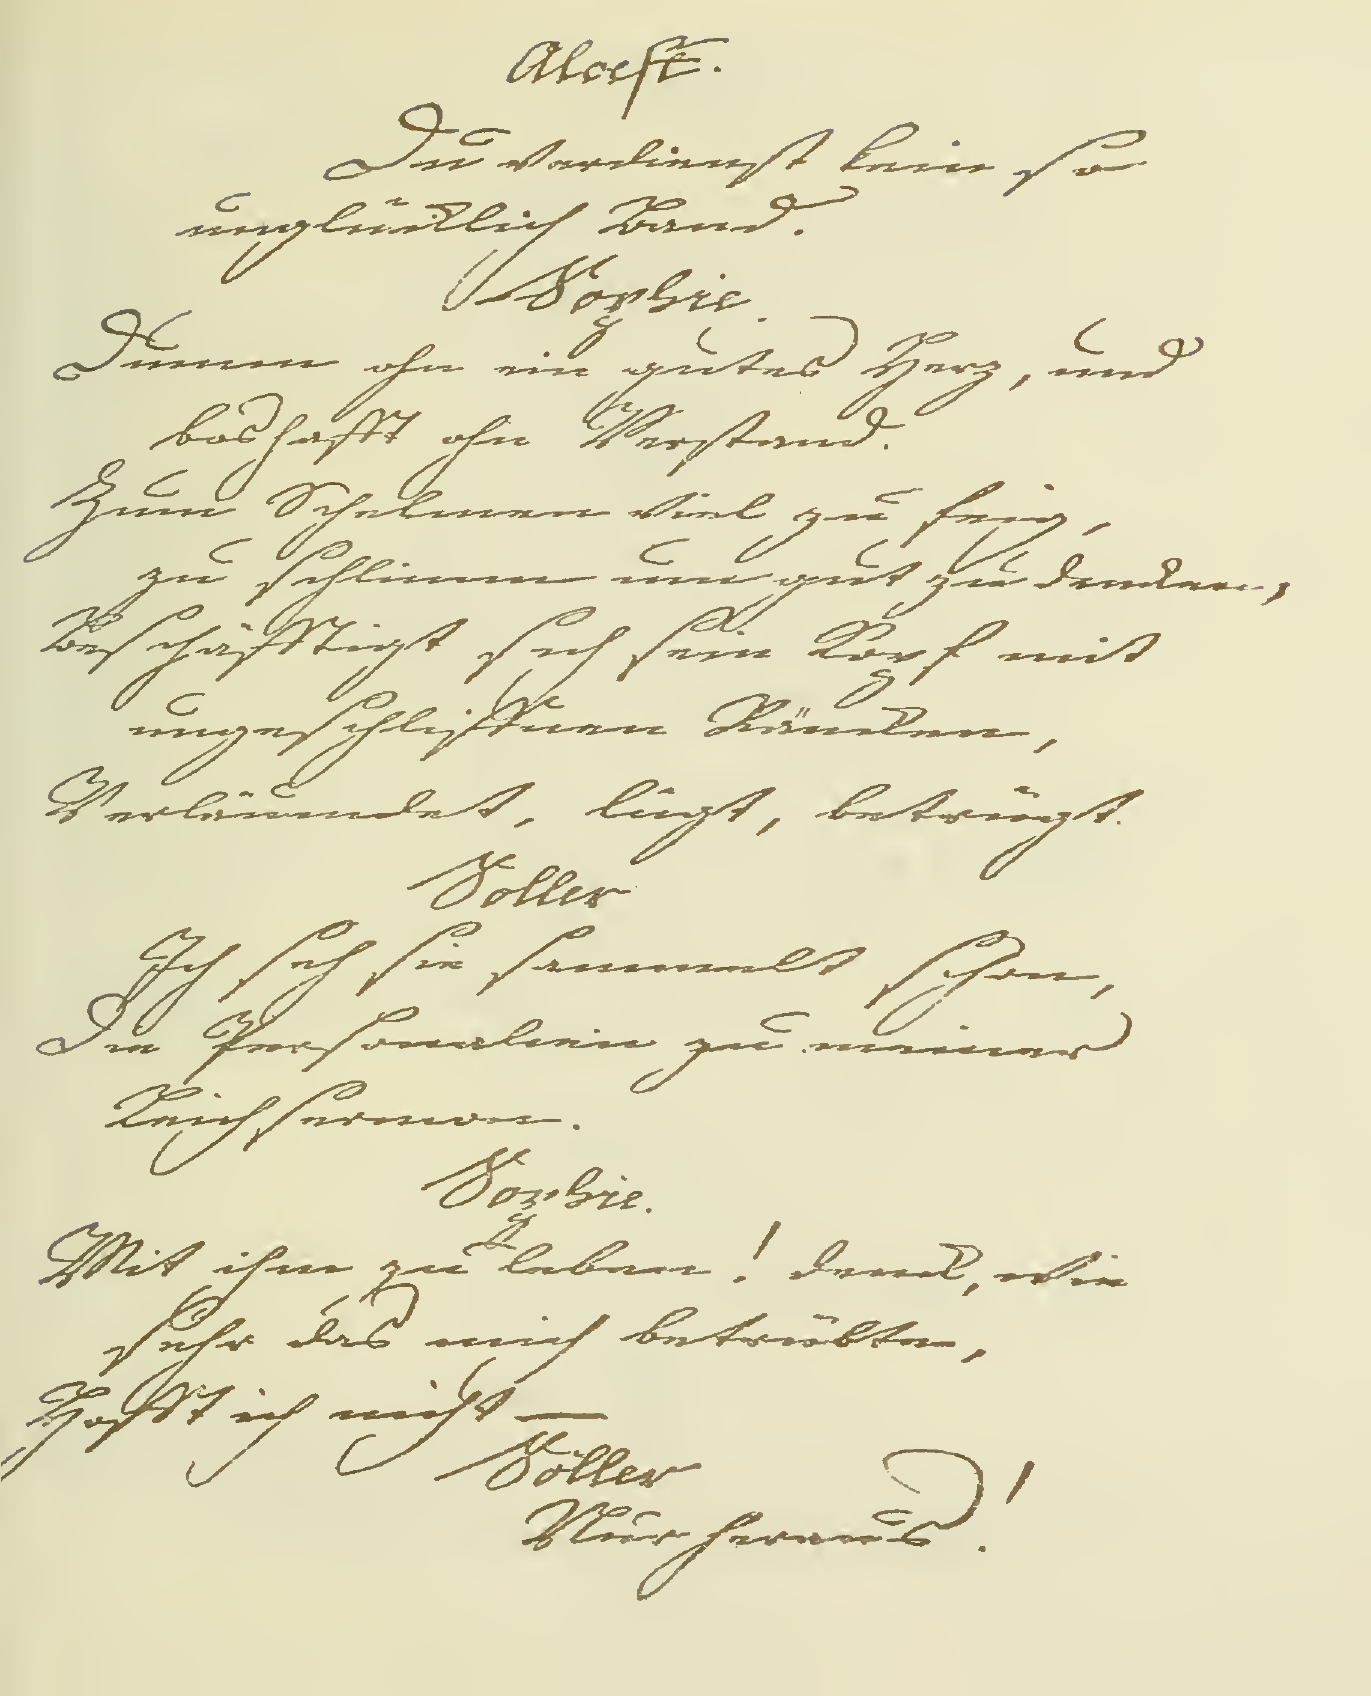 Alceste.
Du verdienst kein so
unglücklich Band.
Sophie.
Dumm ohn ein gutes Herz, und
boshafft ohn Verstand.
Zum Schelmen viel zu feig,
zu schlimm um gut zu dencken,
Beschäfftigt sich sein Kopf mit
ungeschliffnen Räncken,
Verläumdet, lügt, betrügt.
Söller
Ich seh sie sammelt schon,
Die Personalien zu meiner
Leichsermon.
Sophie.
Mit ihm zu leben! denck, wie
sehr das mich betrübte,
Hofft ich nicht —
Söller
Nur heraus!